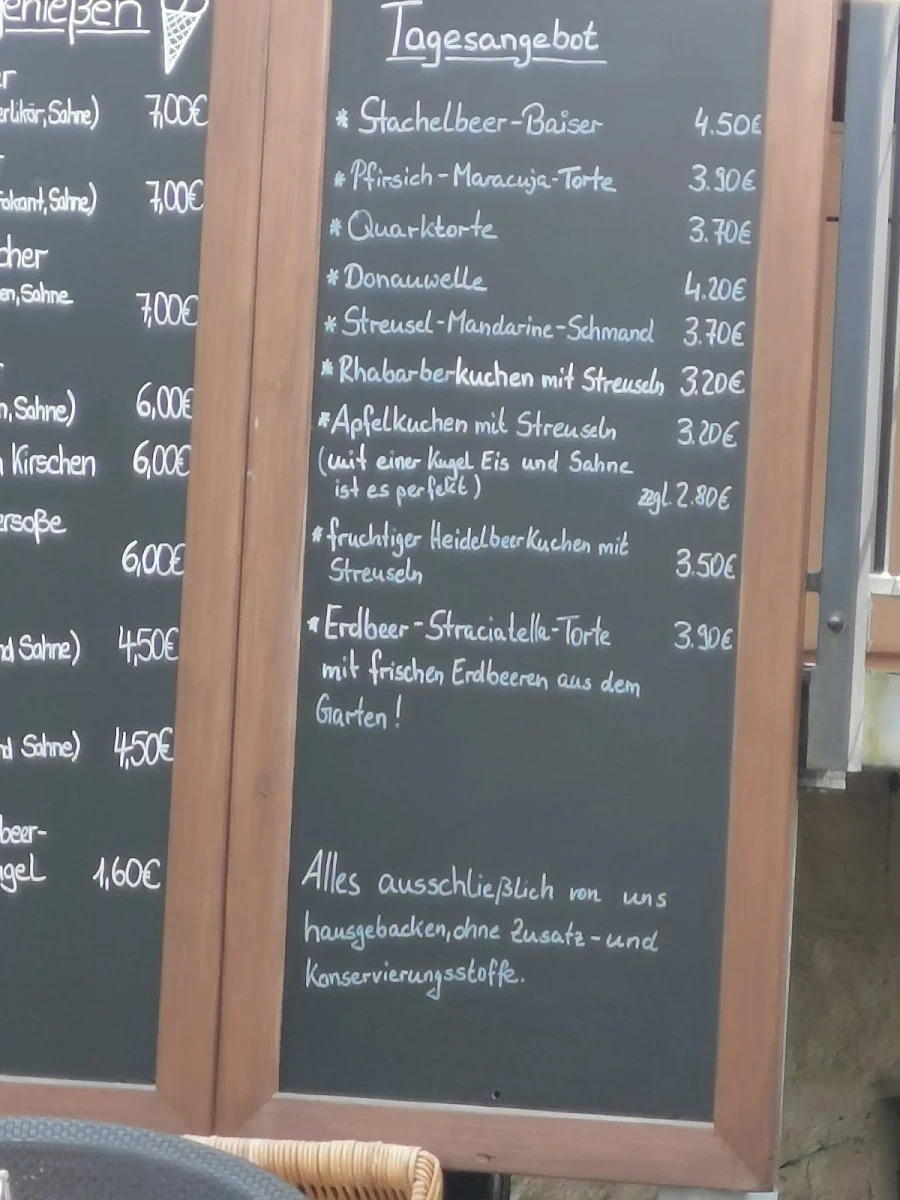 genießen
erlikör, Sahne) 7,00€
okant, Sahne) 7,00€
cher
en, Sahne
7,00€
n, Sahne) 6,00€
Kirschen 6,00€
ersoße
6,00€
nd Sahne) 4,50€
nd Sahne) 4,50€
beer-
gel 1,60€
Tagesangebot
* Stachelbeer-Baiser 4.50€
* Pfirsich-Maracuja-Torte 3.90€
* Quarktorte 3.70€
* Donauwelle 4.20€
* Streusel-Mandarine-Schmand 3.70€
* Rhabarberkuchen mit Streuseln 3.20€
* Apfelkuchen mit Streuseln 3.20€
(mit einer Kugel Eis und Sahne
ist es perfekt) zzgl. 2.80€
* fruchtiger Heidelbeerkuchen mit
Streuseln 3.50€
* Erdbeer-Straciatella-Torte 3.90€
mit frischen Erdbeeren aus dem
Garten!
Alles ausschließlich von uns
hausgebacken, ohne Zusatz- und
Konservierungsstoffe.